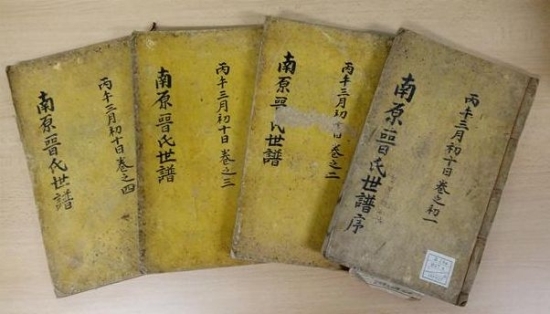 丙午三月初十日 卷之初一
南原晉氏世譜序
丙午三月初十日 卷之二
南原晉氏世譜
丙午三月初十日 卷之三
南原晉氏世譜
丙午三月初十日 卷之四
南原晉氏世譜